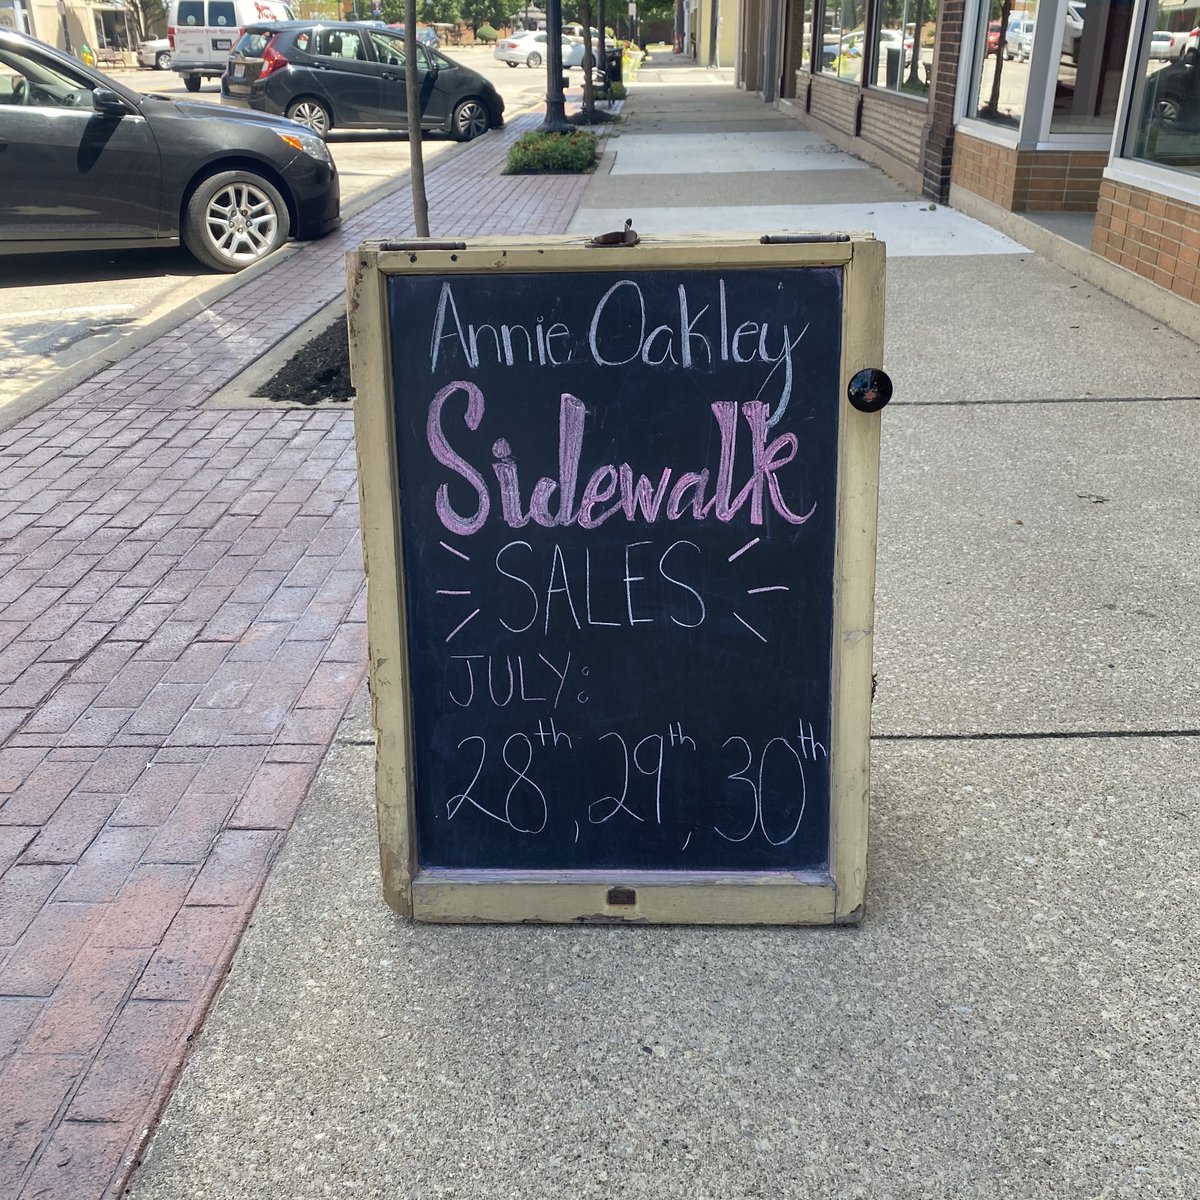 Annie Oakley
Sidewalk
SALES
JULY:
28th, 29th, 30th